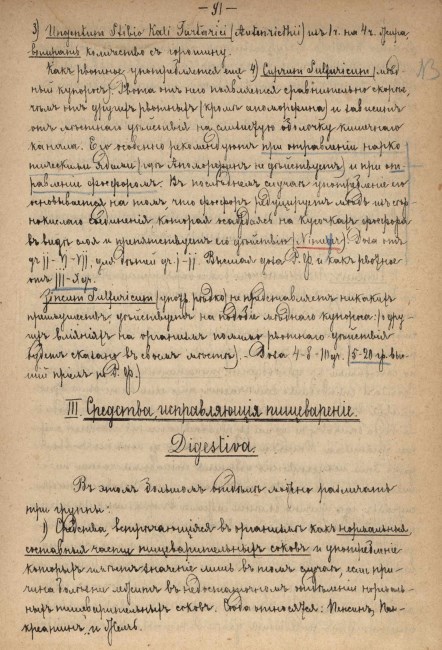 — 91 —
3) Unguentum Stibio Kali Tartarici (Autenriethii) изъ 1 ч. на 4 ч. жира,
количество съ горошину.
Какъ рвотное употребляется еще 4) Cuprum Sulfuricum (мѣд-
ный купоросъ). Рвота отъ него появляется сравнительно скорѣе,
чѣмъ отъ другихъ рвотныхъ (кромѣ апоморфина) и зависитъ
отъ мѣстнаго дѣйствія на слизистую оболочку кишечнаго
канала. Его особенно рекомендуютъ при отравленіи нарко-
тическими ядами (гдѣ Апоморфинъ не дѣйствуетъ) и при от-
равленіи фосфоромъ. Въ послѣднемъ случаѣ употребленіе его
основывается на томъ, что фосфоръ редуцируетъ мѣдь изъ сѣр-
нокислаго соединенія, которая осаждаясь на кусочкахъ фосфора
въ видѣ слоя и препятствуетъ его дѣйствію. Доза отъ
для дѣтей gr. j-jj. Высшая доза Р. Ф. и какъ рвотное
от III-X gr.
Zincum Sulfuricum (употр. рѣдко) не представляетъ никакихъ
преимуществъ, дѣйствуетъ на подобіе мѣднаго купороса: (о дру-
гихъ вліяніяхъ на организмъ помимо рвотнаго дѣйствія
будетъ сказано въ своемъ мѣстѣ). — Доза 4-8-10 gr. (5-20 гр. выс-
шій пріемъ по Р. Ф.)
III. Средства, исправляющія пищевареніе.
Digestiva.
Въ этомъ большомъ отдѣлѣ можно различать
три группы:
1) Средства, встрѣчающіяся въ организмѣ какъ нормальныя
составныя части пищеварительныхъ соковъ и употребленіе
которыхъ имѣетъ значеніе лишь въ томъ случаѣ, если при-
чина болѣзни лежитъ въ недостаточномъ отдѣленіи нормаль-
ныхъ пищеварительныхъ соковъ. Сюда относятся: Пепсинъ, Пан-
креатинъ, и Желчь.